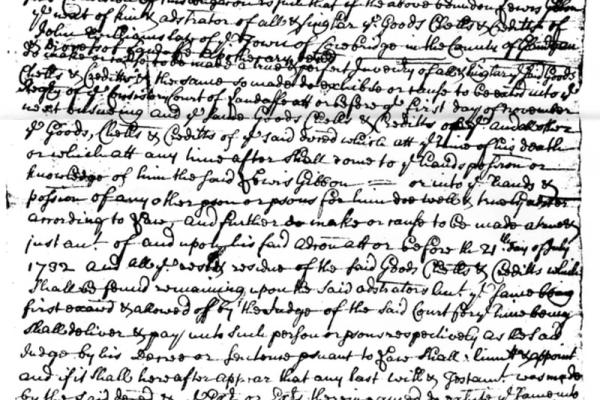 The Condition of this obligation is such that if the above bounden Lewis Gibbon
yᵉ next of kin & adstrator of all & singlar yᵉ Goods Chells & Creditts of
John Williams late of yᵉ Town of Cowbridge in the County of Glamorgan
make or cause to be made a true & perfect Inventry of all & singlar yᵉ said Goods
Chells & Creditts & the same so made do exhibite or cause to be exted into yᵉ
Regry of yᵉ Consistory Court of Landaffe att or before yᵉ first day of November
next ensueing And yᵉ same Goods Chells & Creditts & all other
yᵉ Goods, Chells & Creditts of yᵉ said deced which att yᵉ time of his death
or which att any time after shall come to yᵉ hands possion or
knowledge of him the said Lewis Gibbon — or into yᵉ hands &
possion of any other pson or psons for him doe well & truely adster
according to Law and further do make or cause to be made a true &
just acct of and upon his said adcon att or before the 21th day of July
1732 And all yᵉ rest & residue of the said Goods Chells & Creditts which
shall be found remaining upon the said adstrators acct yᵉ same being
first exaced & allowed of by the Judge of the said Court for yᵉ time being
shall deliver & pay unto such person or psons respectively as the said
Judge by his Decree or Sentence psuant to Law shall limitt & appoint
and if it shall hereafter appear that any last will & Testamt was made
by the said deced & yᵉ Exor or Exors therein named do exhibite yᵉ same into